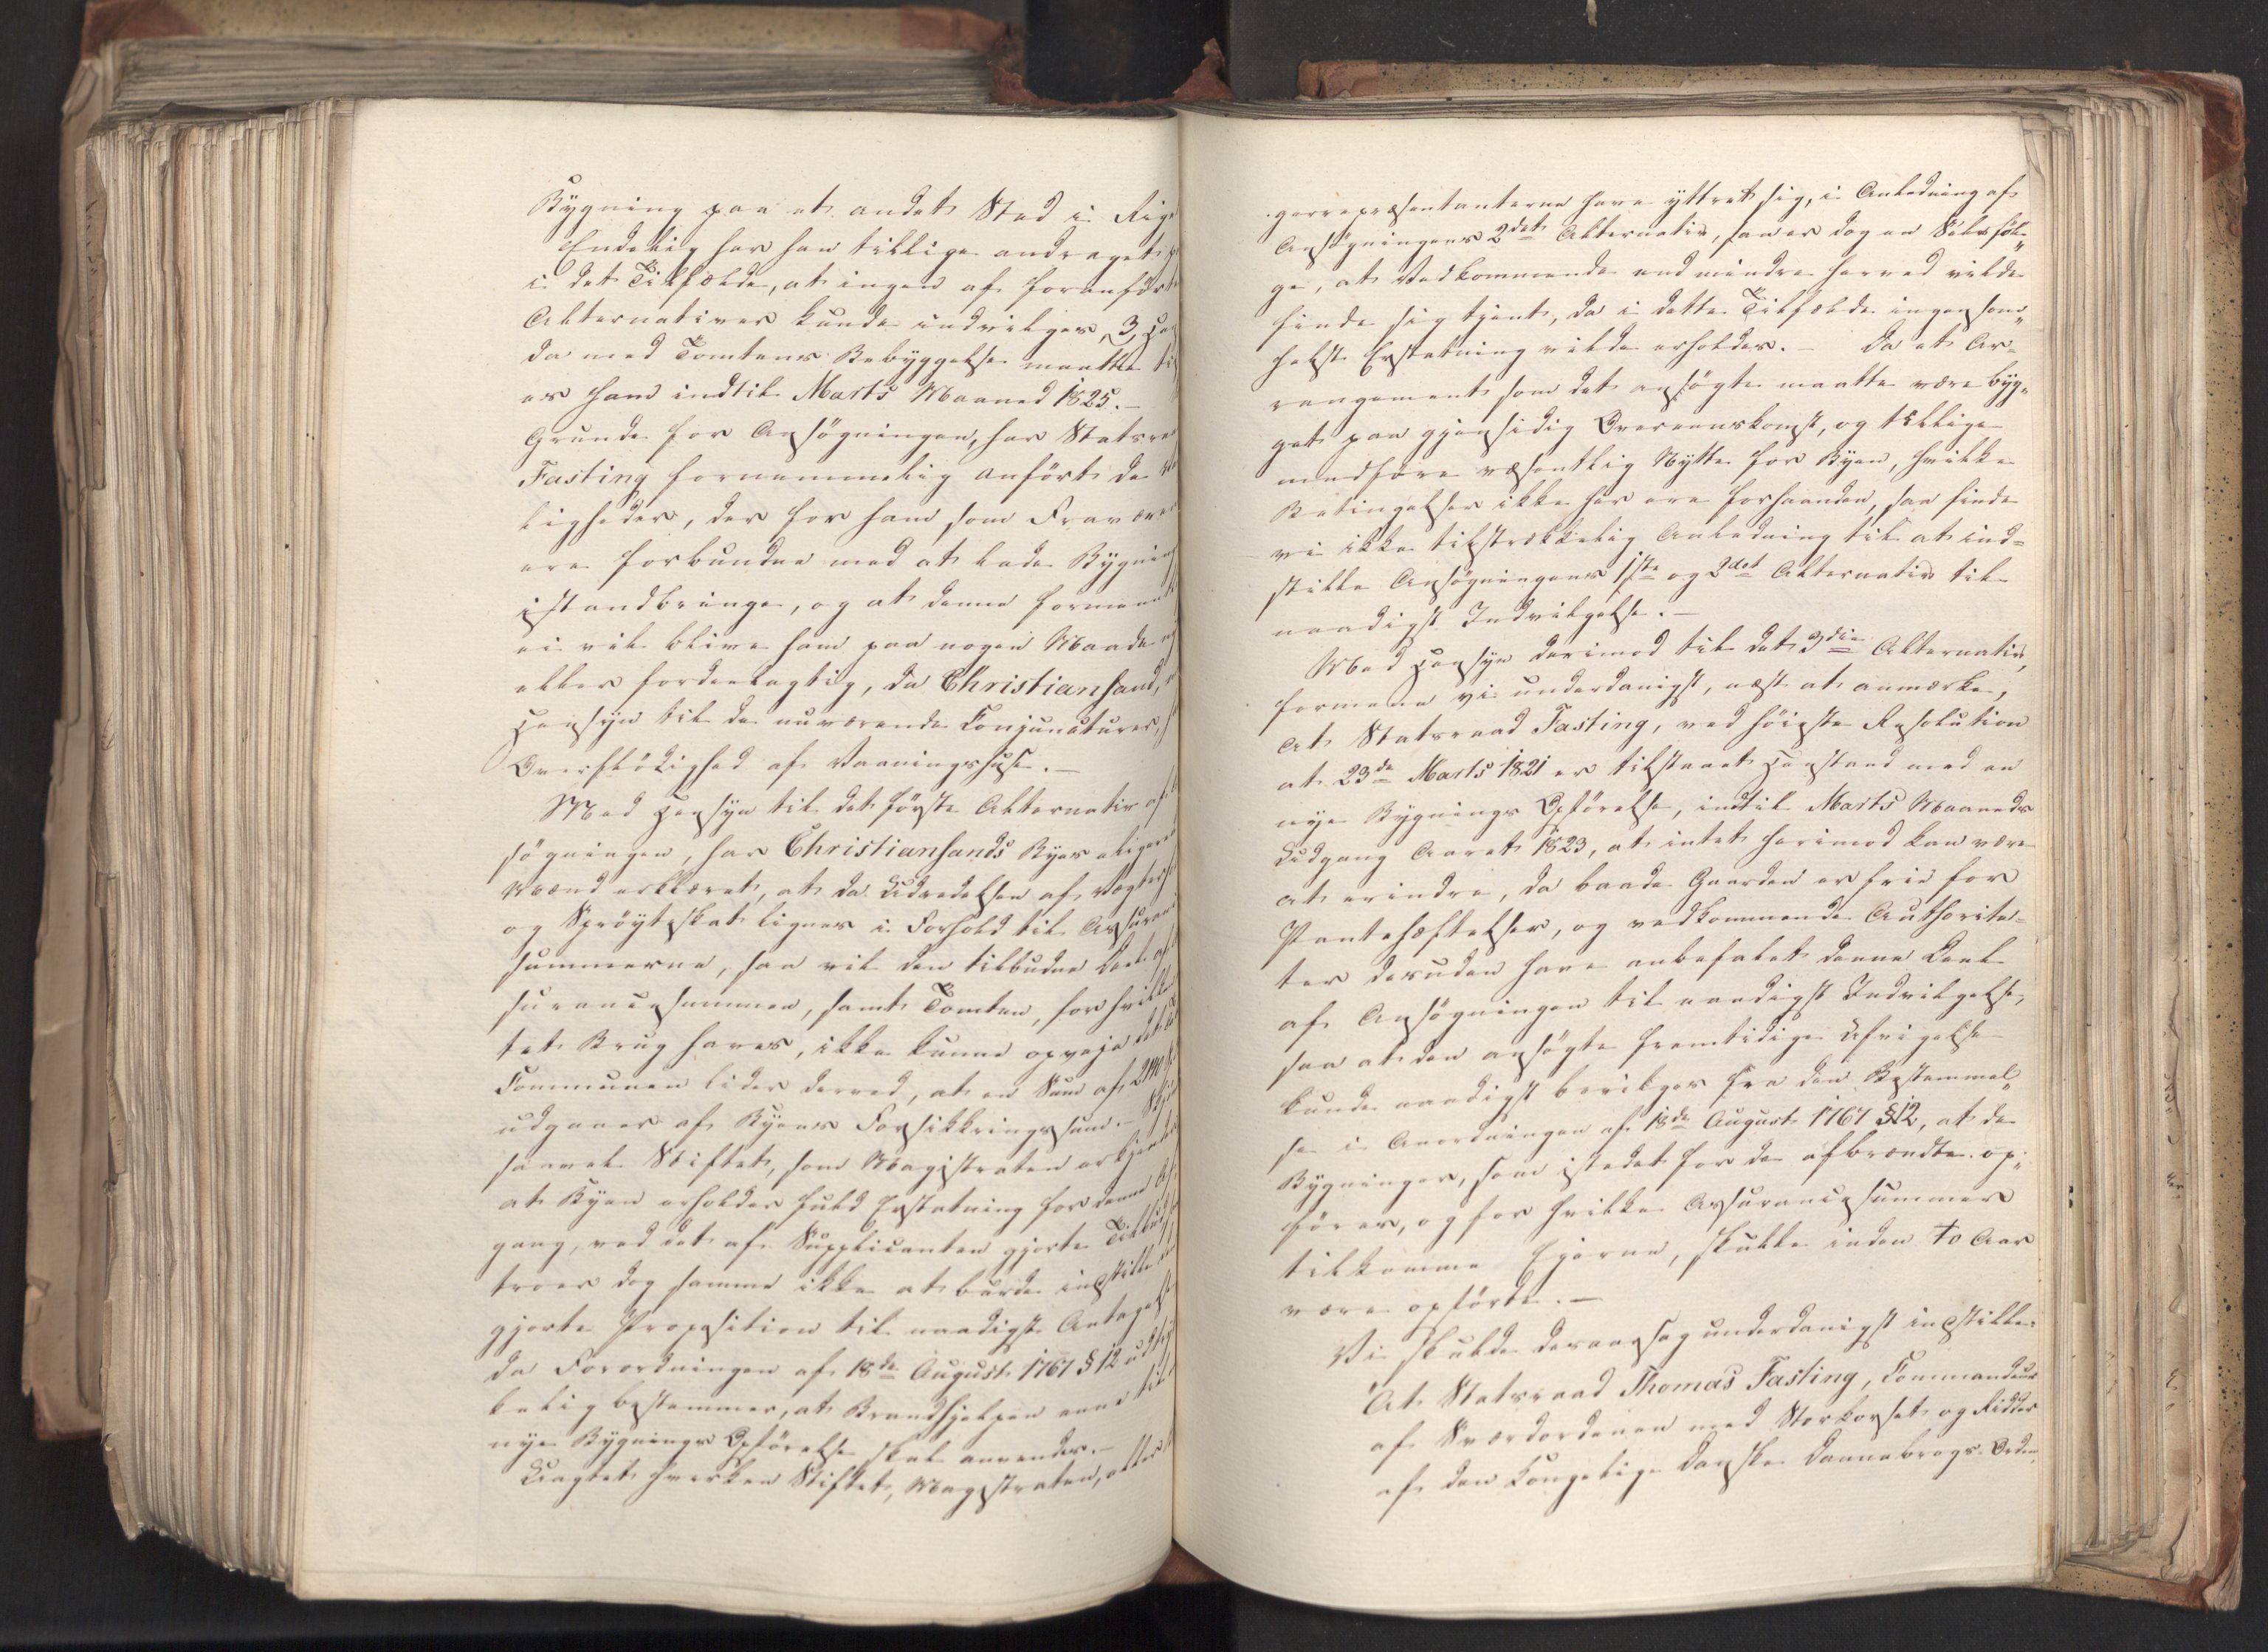 Bygning paa et andet Sted i Rige
Endelig har han tillige andraget p
i det Tilfælde, at ingen af foranførte
Alternativer kunde indvilges, 3, Hen
da med Tomtens Bebyggelse maatte til
es ham indtil Marts Maaned 1825.–
Grunde for Ansøgningen, har Statsra
Fasting fornemmelig anført de
ligheder, der for ham som Fravære
ere forbundne med at lade Bygning
istandbringe, og at denne formeent
ei vil blive ham paa nogen Maade
eller fordeelagtig, da Christiansand,
Hensyn til de nuværende Conjuncturer,
Overflødighed af Vaaningshuse.–
Med Hensyn til det første Alternativ af
søgningen, har Christiansands Byes eligere
Mænd erklæret, at da Udredelsen af Vægter
og Sprøyteskat lignes i Forhold til Assurance
summerne, saa vil den tilbudne Deel af
surancesummen, samt Tomten, for hvilke
tet Brug haves, ikke kunne opveje det
Communen lider derved, at en Sum af
udgaaer af Byens Forsikkringssum.–
saavel Stiftet, som Magistraten erkjender
at Byen erholder fuld Erstatning for denne Af
gang, ved det af Supplicanten gjorte Tilbud
troer dog samme ikke at burde indstille
gjorte Proposition til naadigst Antagelse
da Forordningen af 18de August 1767 § 12 udt
kelig bestemmer, at Brandhjelpen ene til
nye Bygnings Opførelse skal anvendes.–
Uagtet hverken Stiftet, Magistraten, eller
gerrepræsentanterne have yttret sig, i Anledning af
Ansøgningens 2det Alternativ, saa er dog en Selvføl„
ge, at Vedkommende end mindre herved vilde
finde sig tjent, da i dette Tilfælde ingen som„
helst Erstatning vilde erholdes.– Da et Ar=
rangement som det ansøgte maatte være byg„
get paa gjensidig Overeenskomst, og tillige
medføre væsentlig Nytte for Byen, hvilke
Betingelser ikke her ere forhaanden, saa finde
vi ikke tilstrækkelig Anledning til at ind=
stille Ansøgningens 1ste og 2det Alternativ til
naadigst Indvilgelse.–
Med Hensyn derimod til det 3die Alternativ,
formene vi underdanigst, næst at anmærke,
at Statsraad Fasting, ved høieste Resolution
at 23de Marts 1821 er tilstaaet Henstand med en
nye Bygnings Opførelse, indtil Marts Maaneds
Udgang Aaret 1823, at intet herimod kan være
at erindre, da baade Gaarden er frie for
Pantehæftelser, og vedkommende Authorite=
ter desuden have anbefalet denne Deel
af Ansøgningen til naadigst Indvilgelse,
saa at den ansøgte fremtidige Afvigelse
kunde naadigst bevilges fra den Bestemmel„
se i Anordningen af 18de August 1767 § 12, at de
Bygninger, som istedet for de afbrændte op„
føres, og for hvilke Assurancesummer
tilkomme Ejerne, skulle inden to Aar
være opførte.–
Vi skulde desaarsag underdanigst indstille:
At Statsraad Thomas Fasting, Commandeur
af Sværdordenen med Storkorset og Ridder
af den Kongelige Danske Dannebrogs-Orden,